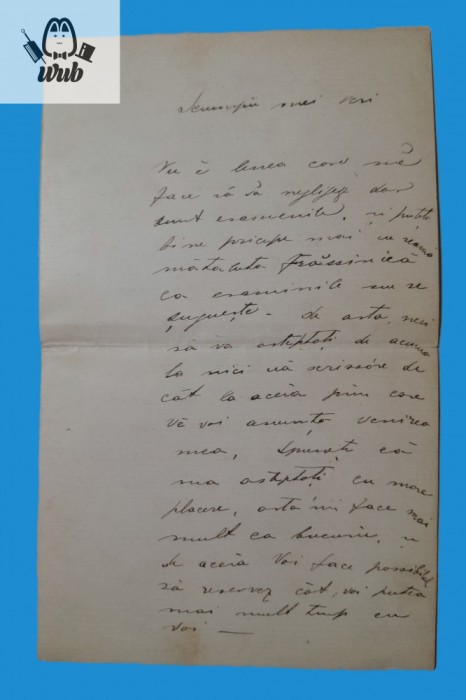 wub
Scumpii mei veri
Nu e lenea care mĕ
face să vă neglijez dar
sunt examenele, și puteti
bine pricepe mai cu seamă
mătăluta Frăssinică
ca examinile nu se
șugueșce. De asta, nici
să va asteptați de acuma
la nici uă scrissóre de
cât la aceia prin care
vĕ voi anunța venirea
mea, Spuneți că
ma asteptati cu mare
placere, asta 'mi face mai
mult ca bucurie, si
de aceia voi face possibilul
să reservez cât, voi putea
mai mult timp cu
voi —